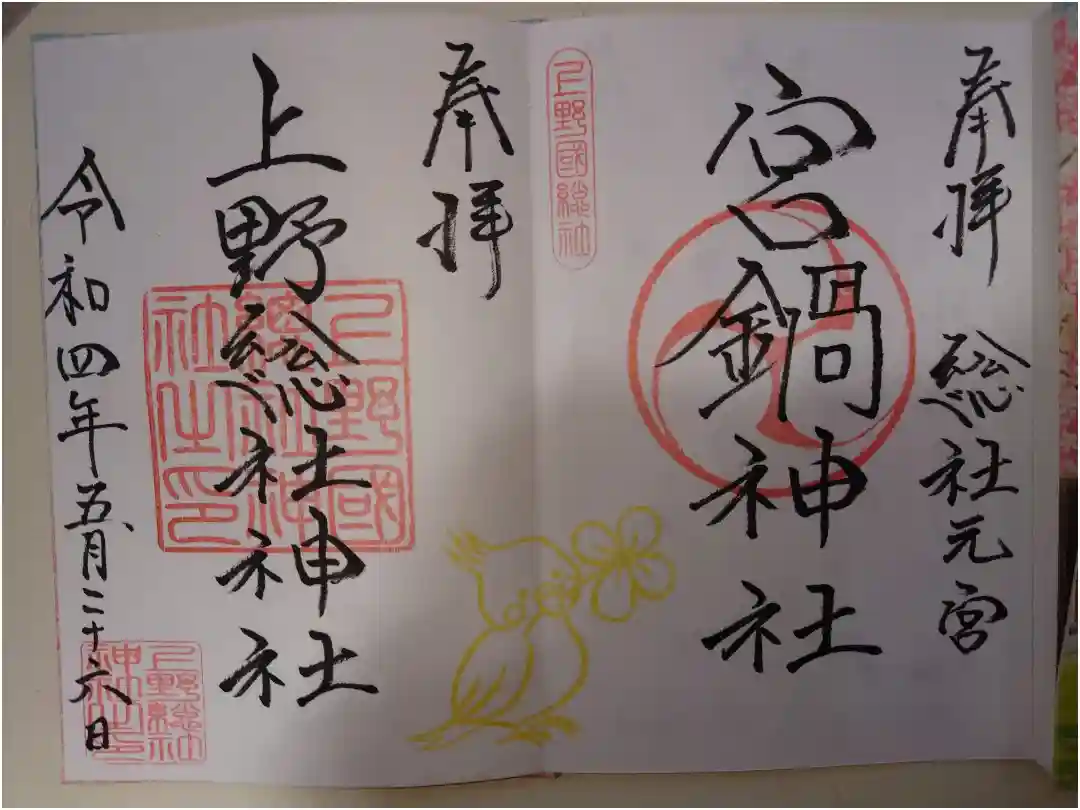 奉拝 総社元宮
宮鍋神社
上野國総社
奉拝
上野総社神社
上野國総社神社之印
令和四年五月二十六日
上野総社神社印